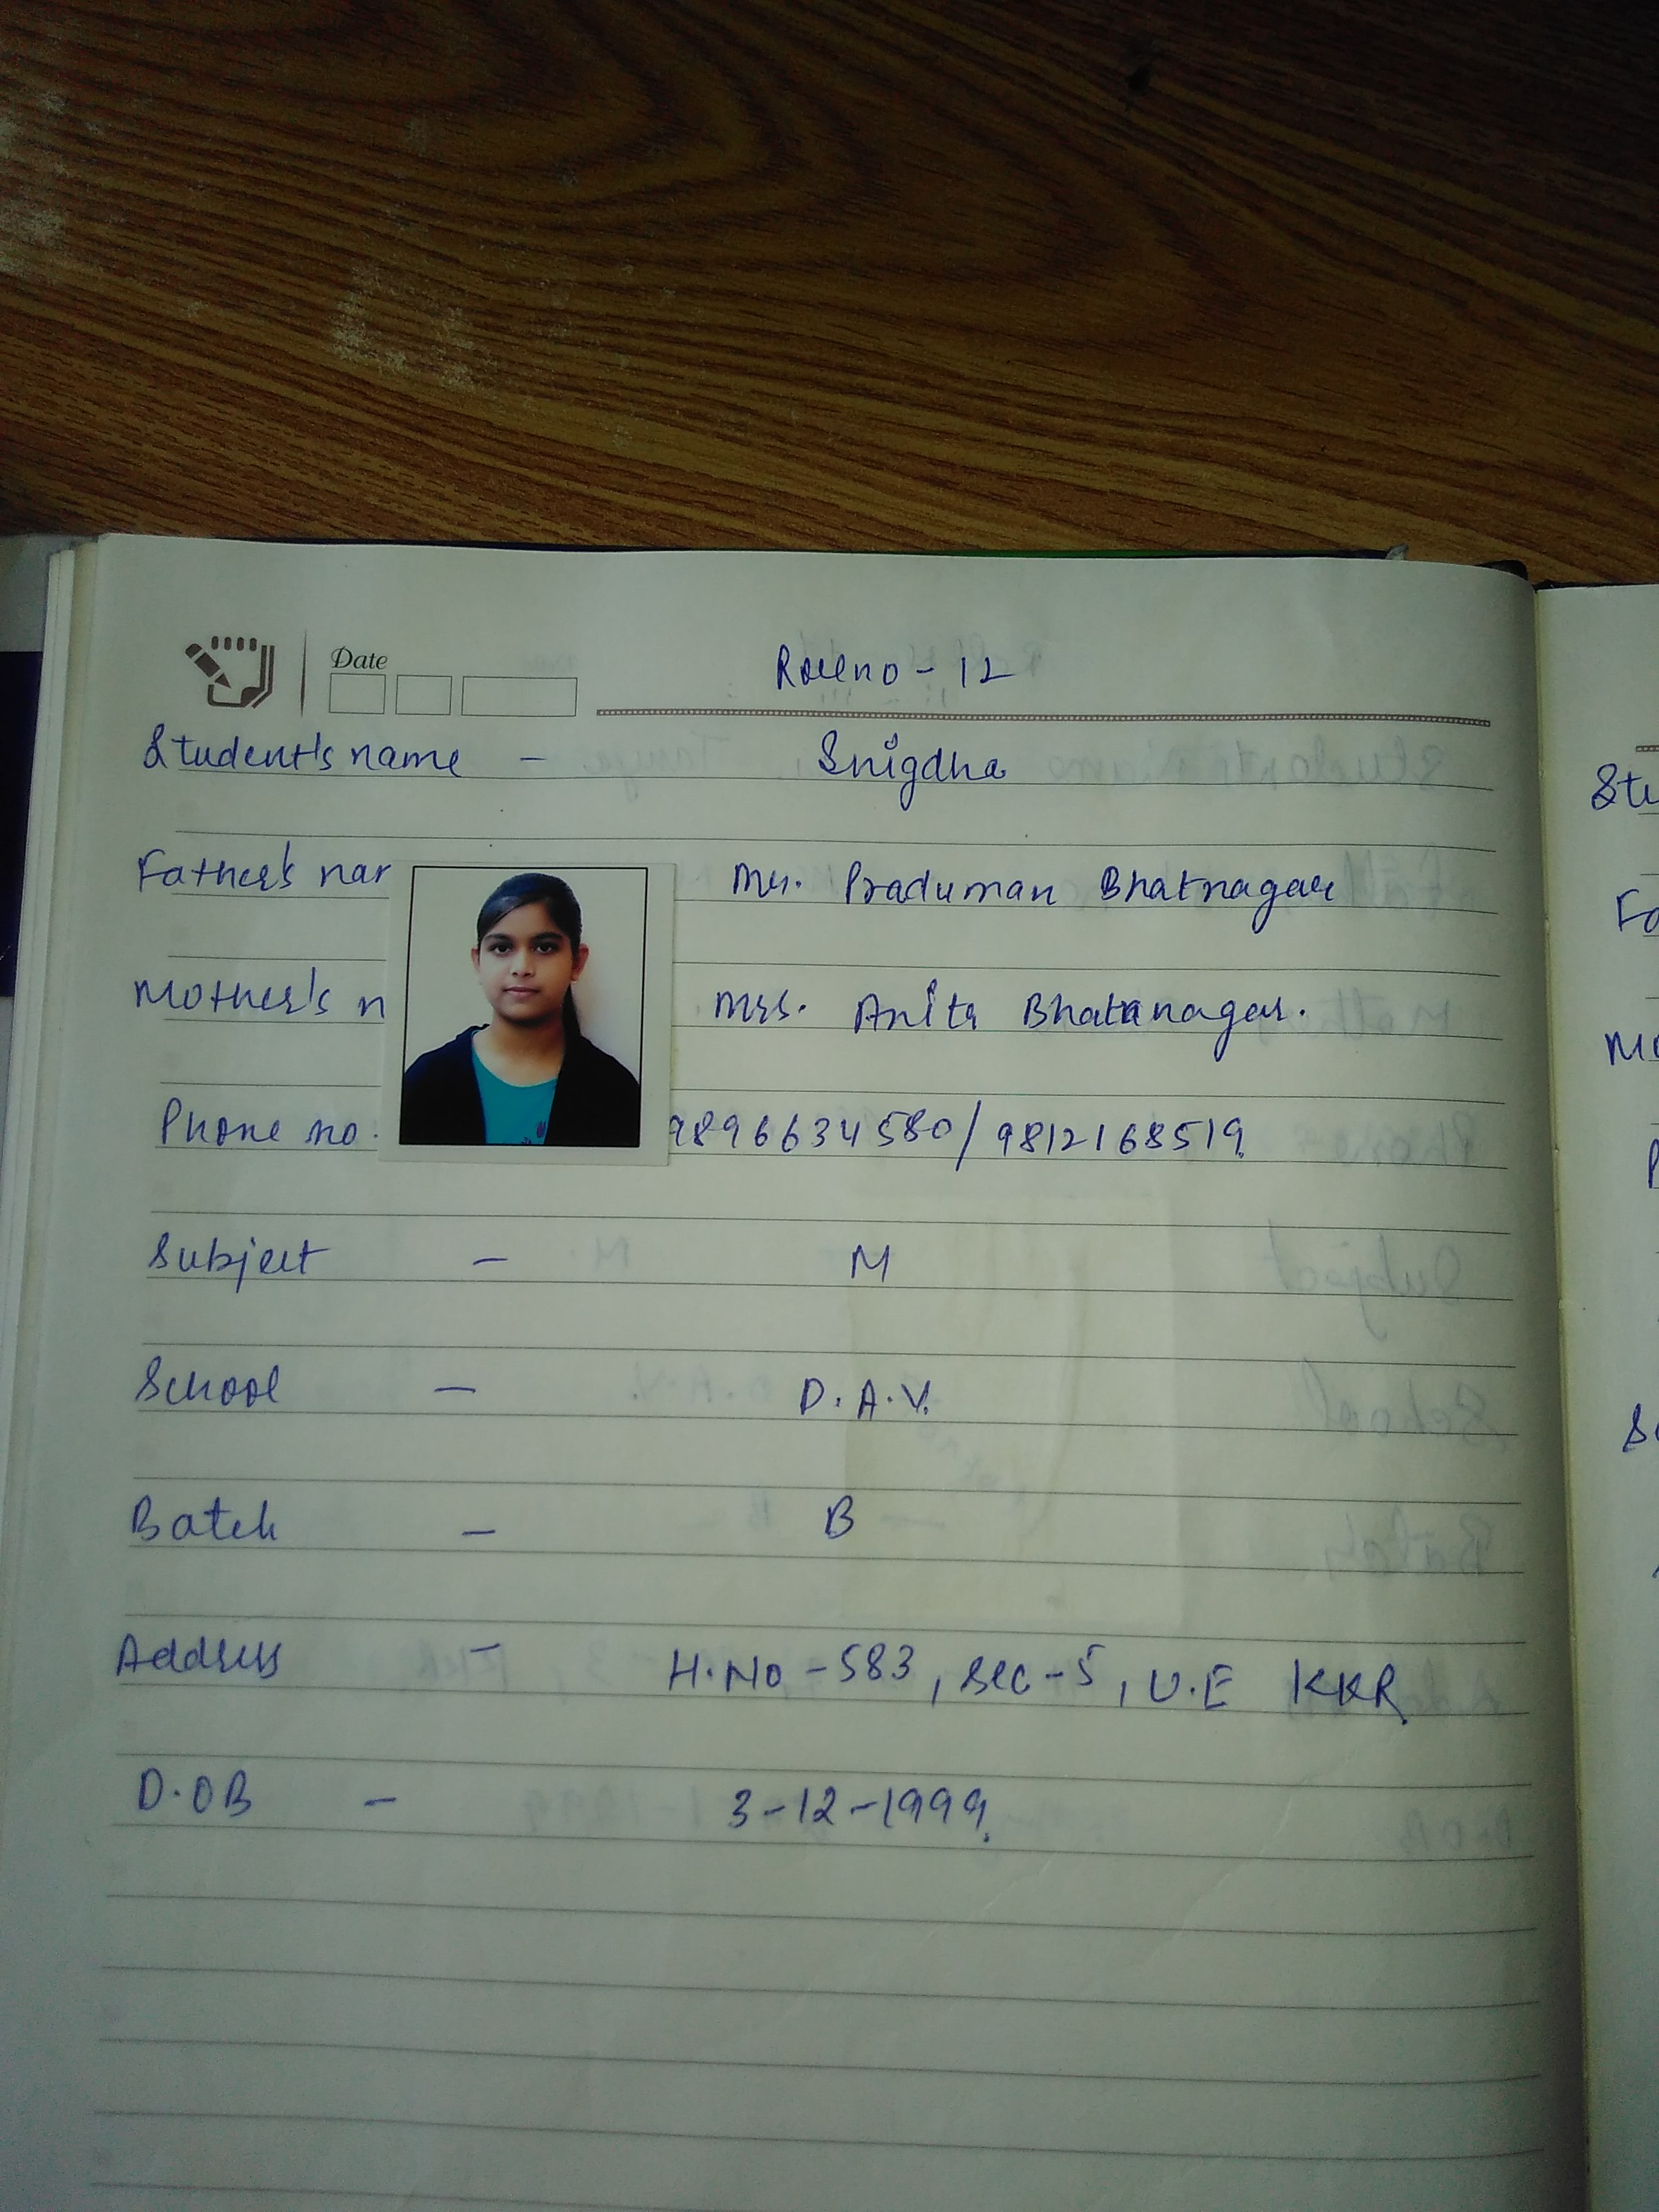 Date
Rollno - 12
Student's name - Snigdha
Father's nam Mr. Praduman Bhatnagar
Mother's n Mrs. Anita Bhatanagar.
Phone no. 9896634580/9812168519
Subject - M
School - D.A.V.
Batch - B
Address - H.No - 583, Sec - 5, U.E KKR
D.OB - 3-12-1999